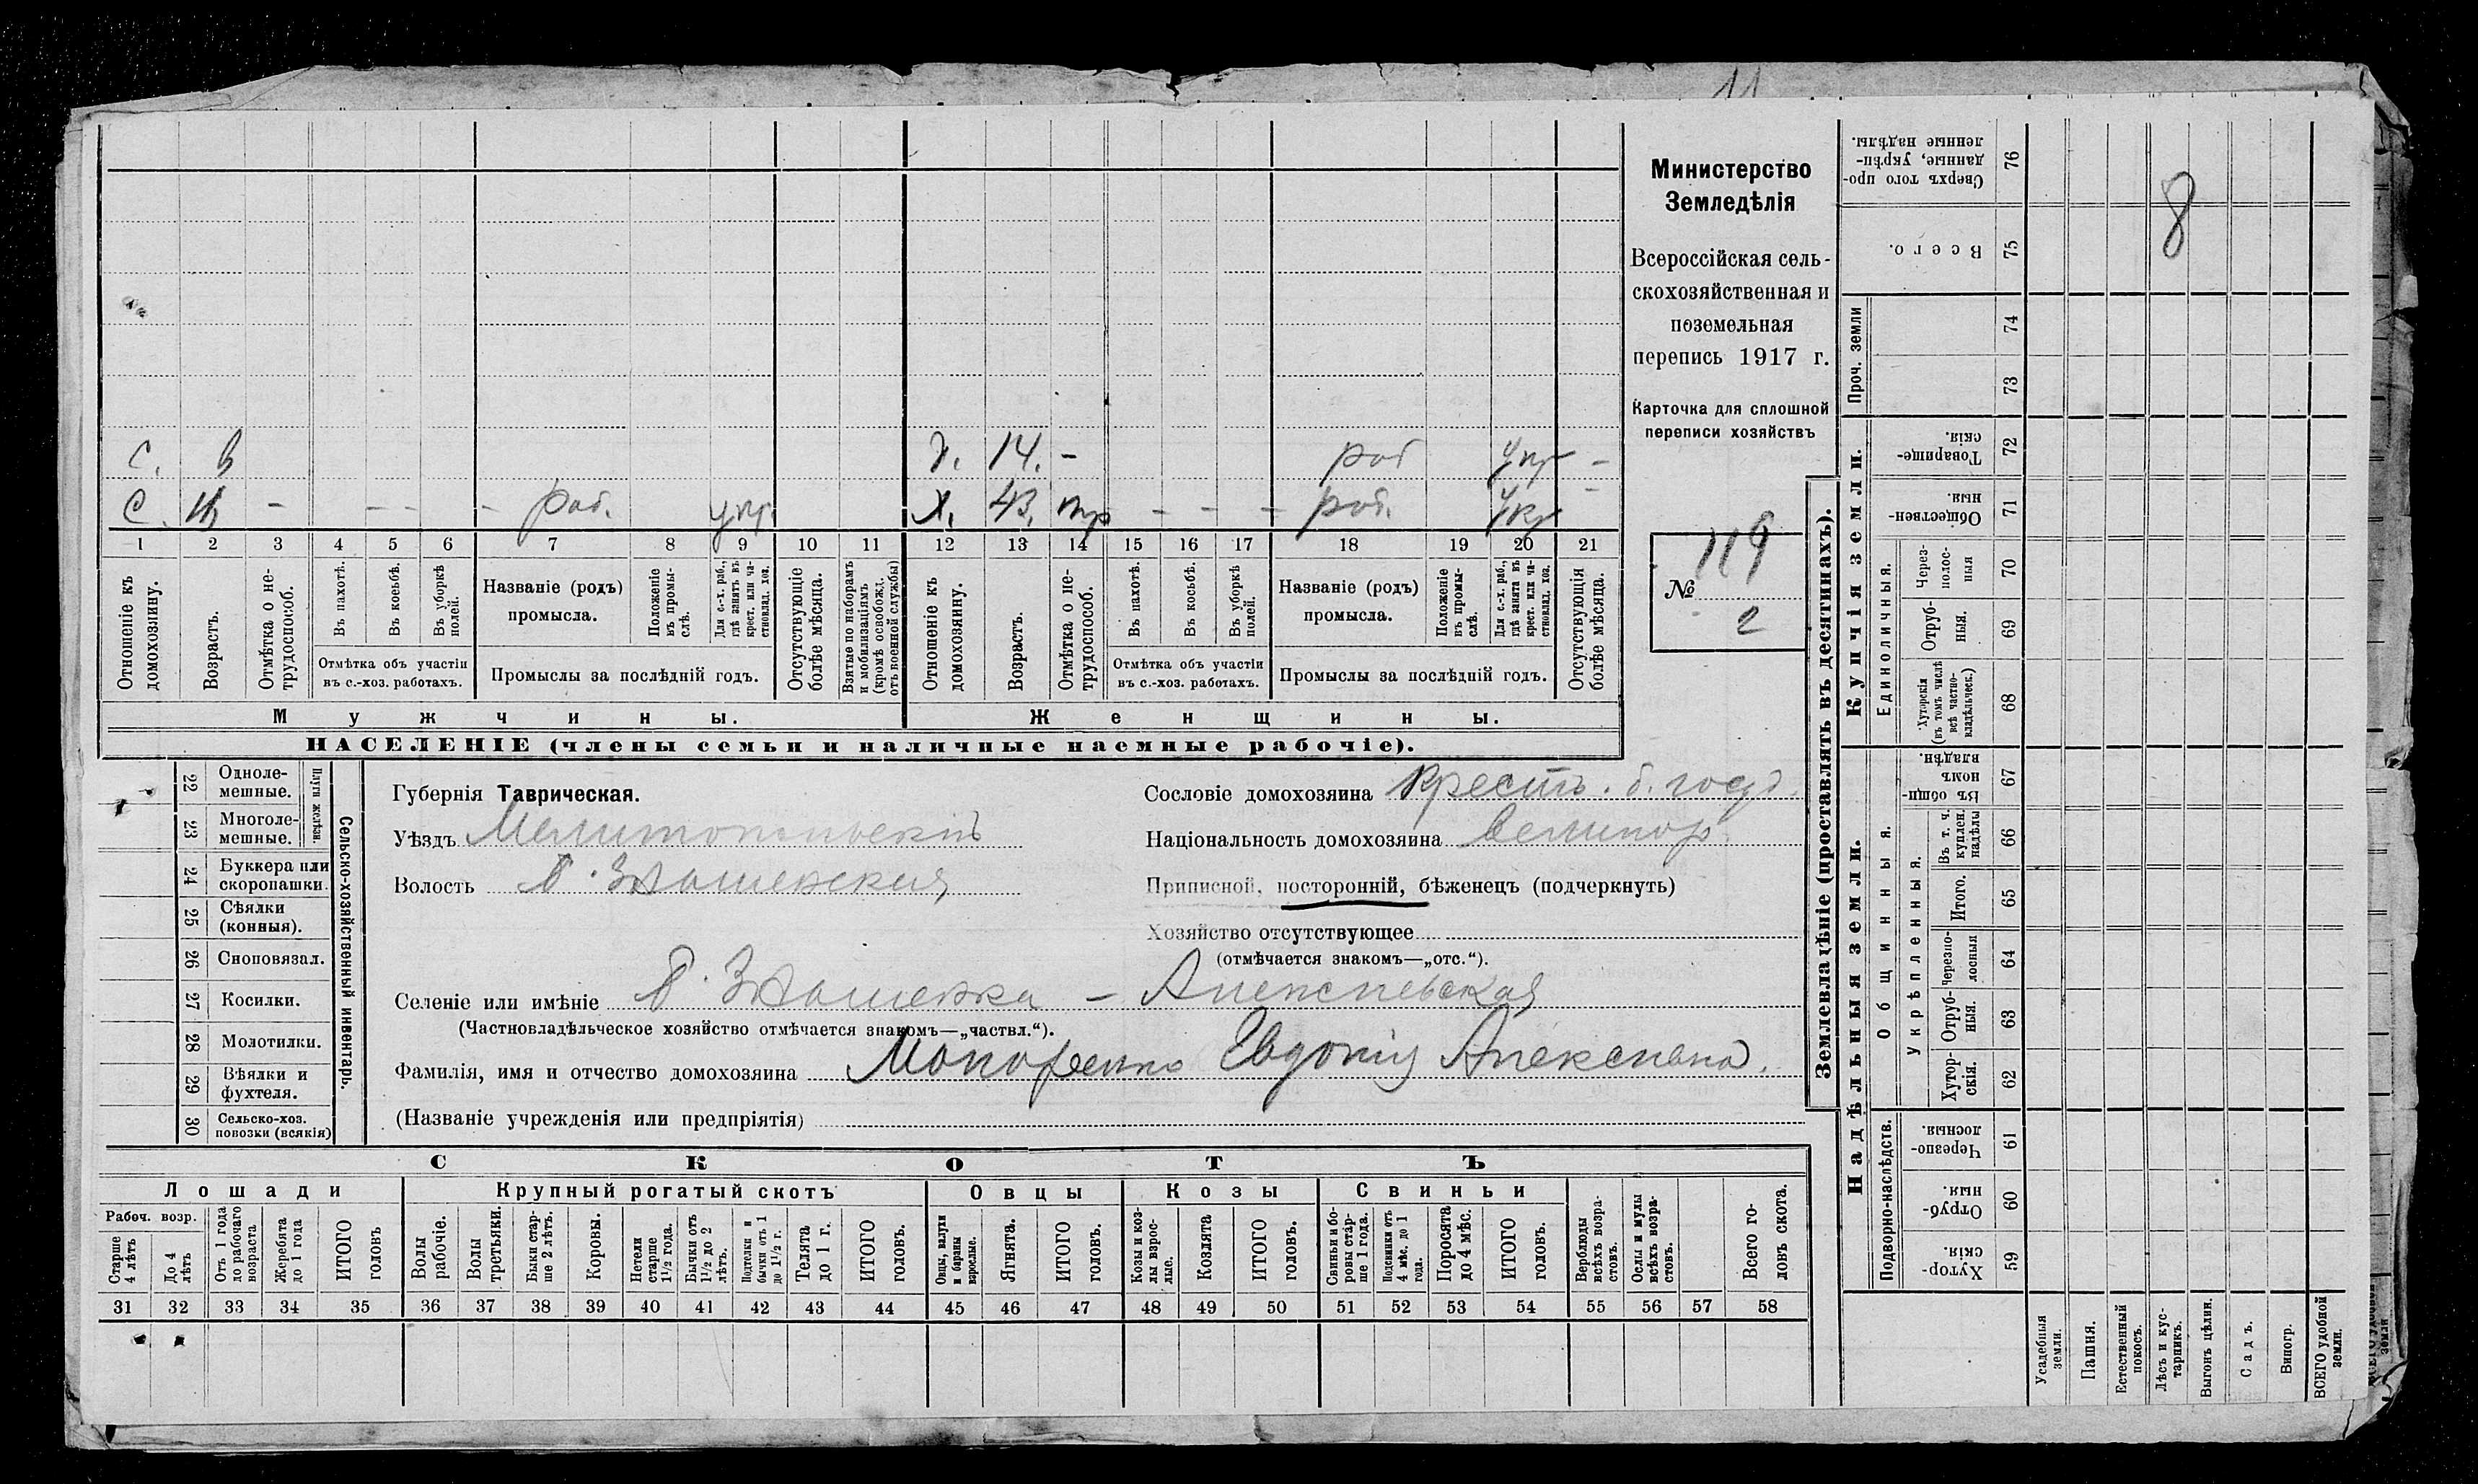 11
Министерство
Земледѣлія
Всероссійская сель-
скохозяйственная и
поземельная
перепись 1917 г.
Карточка для сплошной
переписи хозяйствъ
№ 119
2
С. 14. - раб -
С. - - - - раб. Х. 43. - - - раб. -
1 2 3 4 5 6 7 8 9 10 11 12 13 14 15 16 17 18 19 20 21
Отношеніе къ домохозяину.
Возрастъ.
Отмѣтка о не-трудоспособ.
Въ пахотѣ.
Въ косьбѣ.
Въ уборкѣ полей.
Отмѣтка объ участіи
въ с.-хоз. работахъ.
Названіе (родъ)
промысла.
Положеніе въ промы-слѣ.
Для с.-х. раб., гдѣ занятъ въ крест. или ча-стновлад. хоз.
Промыслы за послѣдній годъ.
Отсутствующіе болѣе мѣсяца.
Взятые по наборамъ и мобилизаціямъ (кромѣ освобожд. отъ военной службы)
Отношеніе къ домохозяину.
Возрастъ.
Отмѣтка о не-трудоспособ.
Въ пахотѣ.
Въ косьбѣ.
Въ уборкѣ полей.
Отмѣтка объ участіи
въ с.-хоз. работахъ.
Названіе (родъ)
промысла.
Положеніе въ промы-слѣ.
Для с.-х. раб., гдѣ занята въ крест. или ча-стновлад. хоз.
Промыслы за послѣдній годъ.
Отсутствующія болѣе мѣсяца.
Мужчины. Женщины.
НАСЕЛЕНІЕ (члены семьи и наличные наемные рабочіе).
22 Одноле-мешные.
23 Многоле-мешные.
Плуги желѣзн.
24 Буккера или скоропашки.
25 Сѣялки (конныя).
26 Сноповязал.
27 Косилки.
28 Молотилки.
29 Вѣялки и фухтеля.
30 Сельско-хоз. повозки (всякія)
Сельско-хозяйственный инвентарь.
Губернія Таврическая.
Уѣздъ Мелитопольскій
Волость
Сословіе домохозяина Крестъ. б. госуд.
Національность домохозяина великор.
Приписной, посторонній, бѣженецъ (подчеркнуть)
Хозяйство отсутствующее
(отмѣчается знакомъ—„отс.“).
Селеніе или имѣніе - Алексѣевская
(Частновладѣльческое хозяйство отмѣчается знакомъ—„частвл.“).
Фамилія, имя и отчество домохозяина Евдокія
(Названіе учрежденія или предпріятія)
СКОТЪ
Лошади Крупный рогатый скотъ Овцы Козы Свиньи
Рабоч. возр.
Старше 4 лѣтъ
До 4 лѣтъ
Отъ 1 года до рабочаго возраста
Жеребята до 1 года
ИТОГО головъ
Волы рабочіе.
Волы третьяки.
Быки стар-ше 2 лѣтъ.
Коровы.
Нетели старше 1½ года.
Бычки отъ 1½ до 2 лѣтъ.
Подтелки и бычки отъ 1 до 1½ г.
Телята до 1 г.
ИТОГО головъ.
Овцы, валухи и бараны взрослые.
Ягнята.
ИТОГО головъ.
Козы и коз-лы взрос-лые.
Козлята
ИТОГО головъ.
Свиньи и бо-ровы стар-ше 1 года.
Подсвинки отъ 4 мѣс. до 1 года.
Поросята до 4 мѣс.
ИТОГО головъ.
Верблюды всѣхъ возра-стовъ.
Ослы и мулы всѣхъ возра-стовъ.
Всего го-ловъ скота.
31 32 33 34 35 36 37 38 39 40 41 42 43 44 45 46 47 48 49 50 51 52 53 54 55 56 57 58
Землевладѣніе (проставлять въ десятинахъ).
Купчія земли.
Надѣльныя земли.
Проч. земли
Единоличныя.
Общинныя.
Укрѣпленныя.
Подворно-наслѣдств.
Сверхъ того про-данные, укрѣп-ленные надѣлы. 76
8
Всего. 75
74
73
Товарище-скія. 72
Обществен-ныя. 71
Через-полос-ныя 70
Отруб-ныя. 69
Хуторскія (въ томъ числѣ всѣ частно-владѣльческ.) 68
Въ общин-номъ владѣн. 67
Въ т. ч. куплен. надѣлы 66
Итого. 65
Черезпо-лосныя 64
Отруб-ныя. 63
Хутор-скія. 62
Черезпо-лосныя. 61
Отруб-ныя. 60
Хутор-скія. 59
Усадебныя земли.
Пашня.
Естественный покосъ.
Лѣсъ и кус-тарникъ.
Выгонъ цѣлин.
Садъ.
Виногр.
ВСЕГО удобной земли.